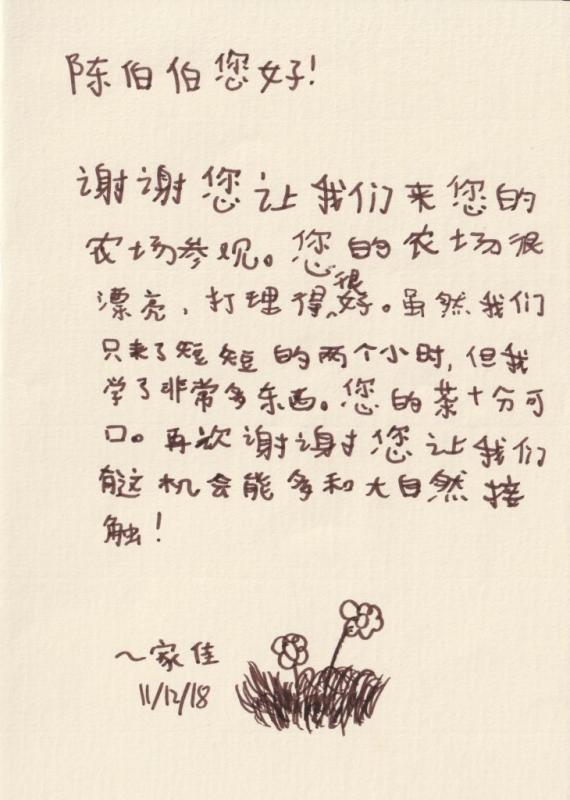 陈伯伯您好!
谢谢您让我们来您的
农场参观。您的农场很
漂亮,打理得很好。虽然我们
只来了短短的两个小时,但我
学了非常多东西。您的茶十分可
口。再次谢谢您让我们
有这机会能多和大自然接
触!
~家佳
11/12/18